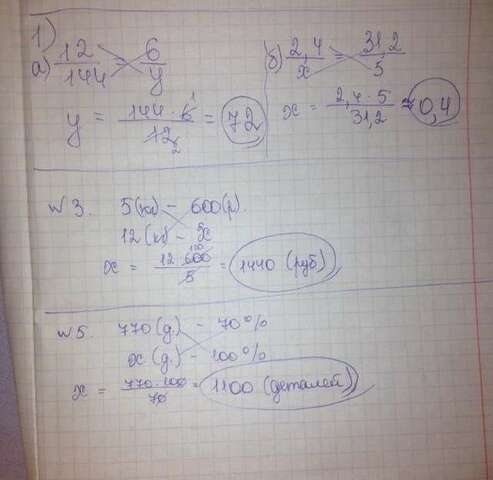 1)
а) 12/144 = 6/y
y = 144 · 6/12 = 72
б) 2,4/x = 31,2/5
x = 2,4 · 5/31,2 ≈ 0,4
№ 3. 5(кг) – 600(р).
12(кг) – x
x = 12 · 600/5 = 1440 (руб)
№ 5. 770(д.) – 70%
x(д.) – 100%
x = 770 · 100/70 = 1100 (деталей)